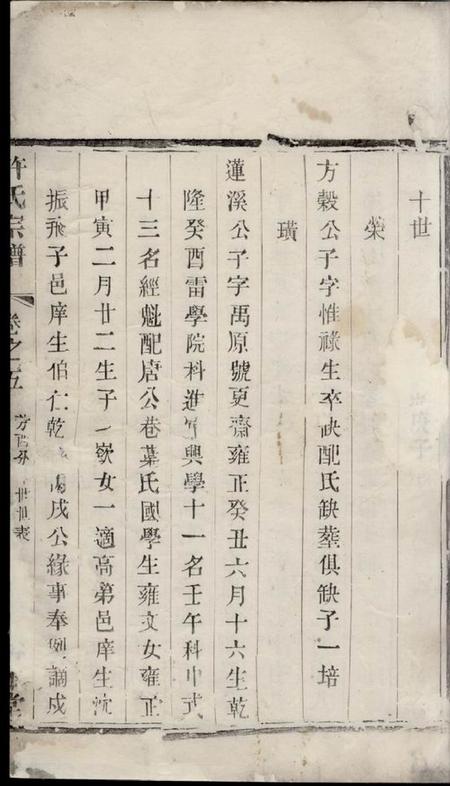 十世
榮
方穀公子字惟祿生卒缺配氏缺葬俱缺子一培
璜
蓮溪公子字禹原號更齋雍正癸丑六月十六生乾
隆癸酉雷學院科進興學十一名壬午科中式
十三名經魁配唐公巷葉氏國學生雍文女雍正
甲寅二月廿二生子一欽女一適高第邑庠生沈
振飛子邑庠生伯仁乾戌公緣事奉例謫戍
許氏宗譜 卷之五 世表 堂